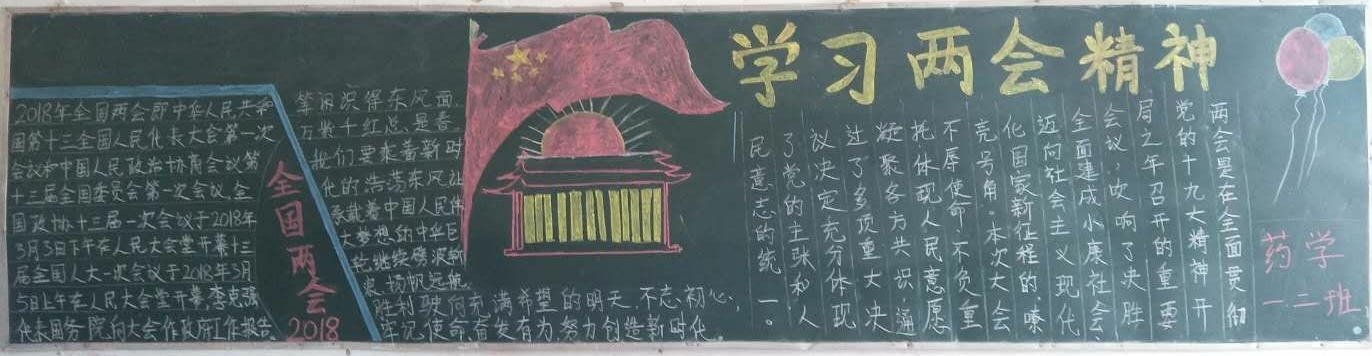 学习两会精神
2018年全国两会即中华人民共和
国第十三全国人民代表大会第一次
会议和中国人民政治协商会议第
十三届全国委员会第一次会议。全
国政协十三届一次会议于2018年
3月3日下午在人民大会堂开幕十三
届全国人大一次会议于2018年3月
5日上午在人民大会堂开幕李克强
代表国务院向大会作政府工作报告。
全国两会
2018
等闲识得东风面,
万紫千红总是春
我们要乘着新时
代的浩荡东风让
承载着中国人民伟
大梦想的中华巨
轮继续破浪
扬帆远航
胜利驶向充满希望的明天,不忘初心,
牢记使命,奋发有为,努力创造新时代。
两会是在全面贯彻
党的十九大精神开
局之年召开的重要
会议,吹响了决胜
全面建成小康社会、
迈向社会主义现代
化国家新征程的嘹
亮号角。本次大会
不辱使命,不负重
托体现人民意愿
凝聚各方共识,通
过了多项重大决
议决定充分体现
了党的主张和人
民意志的统一。
药学
一二班